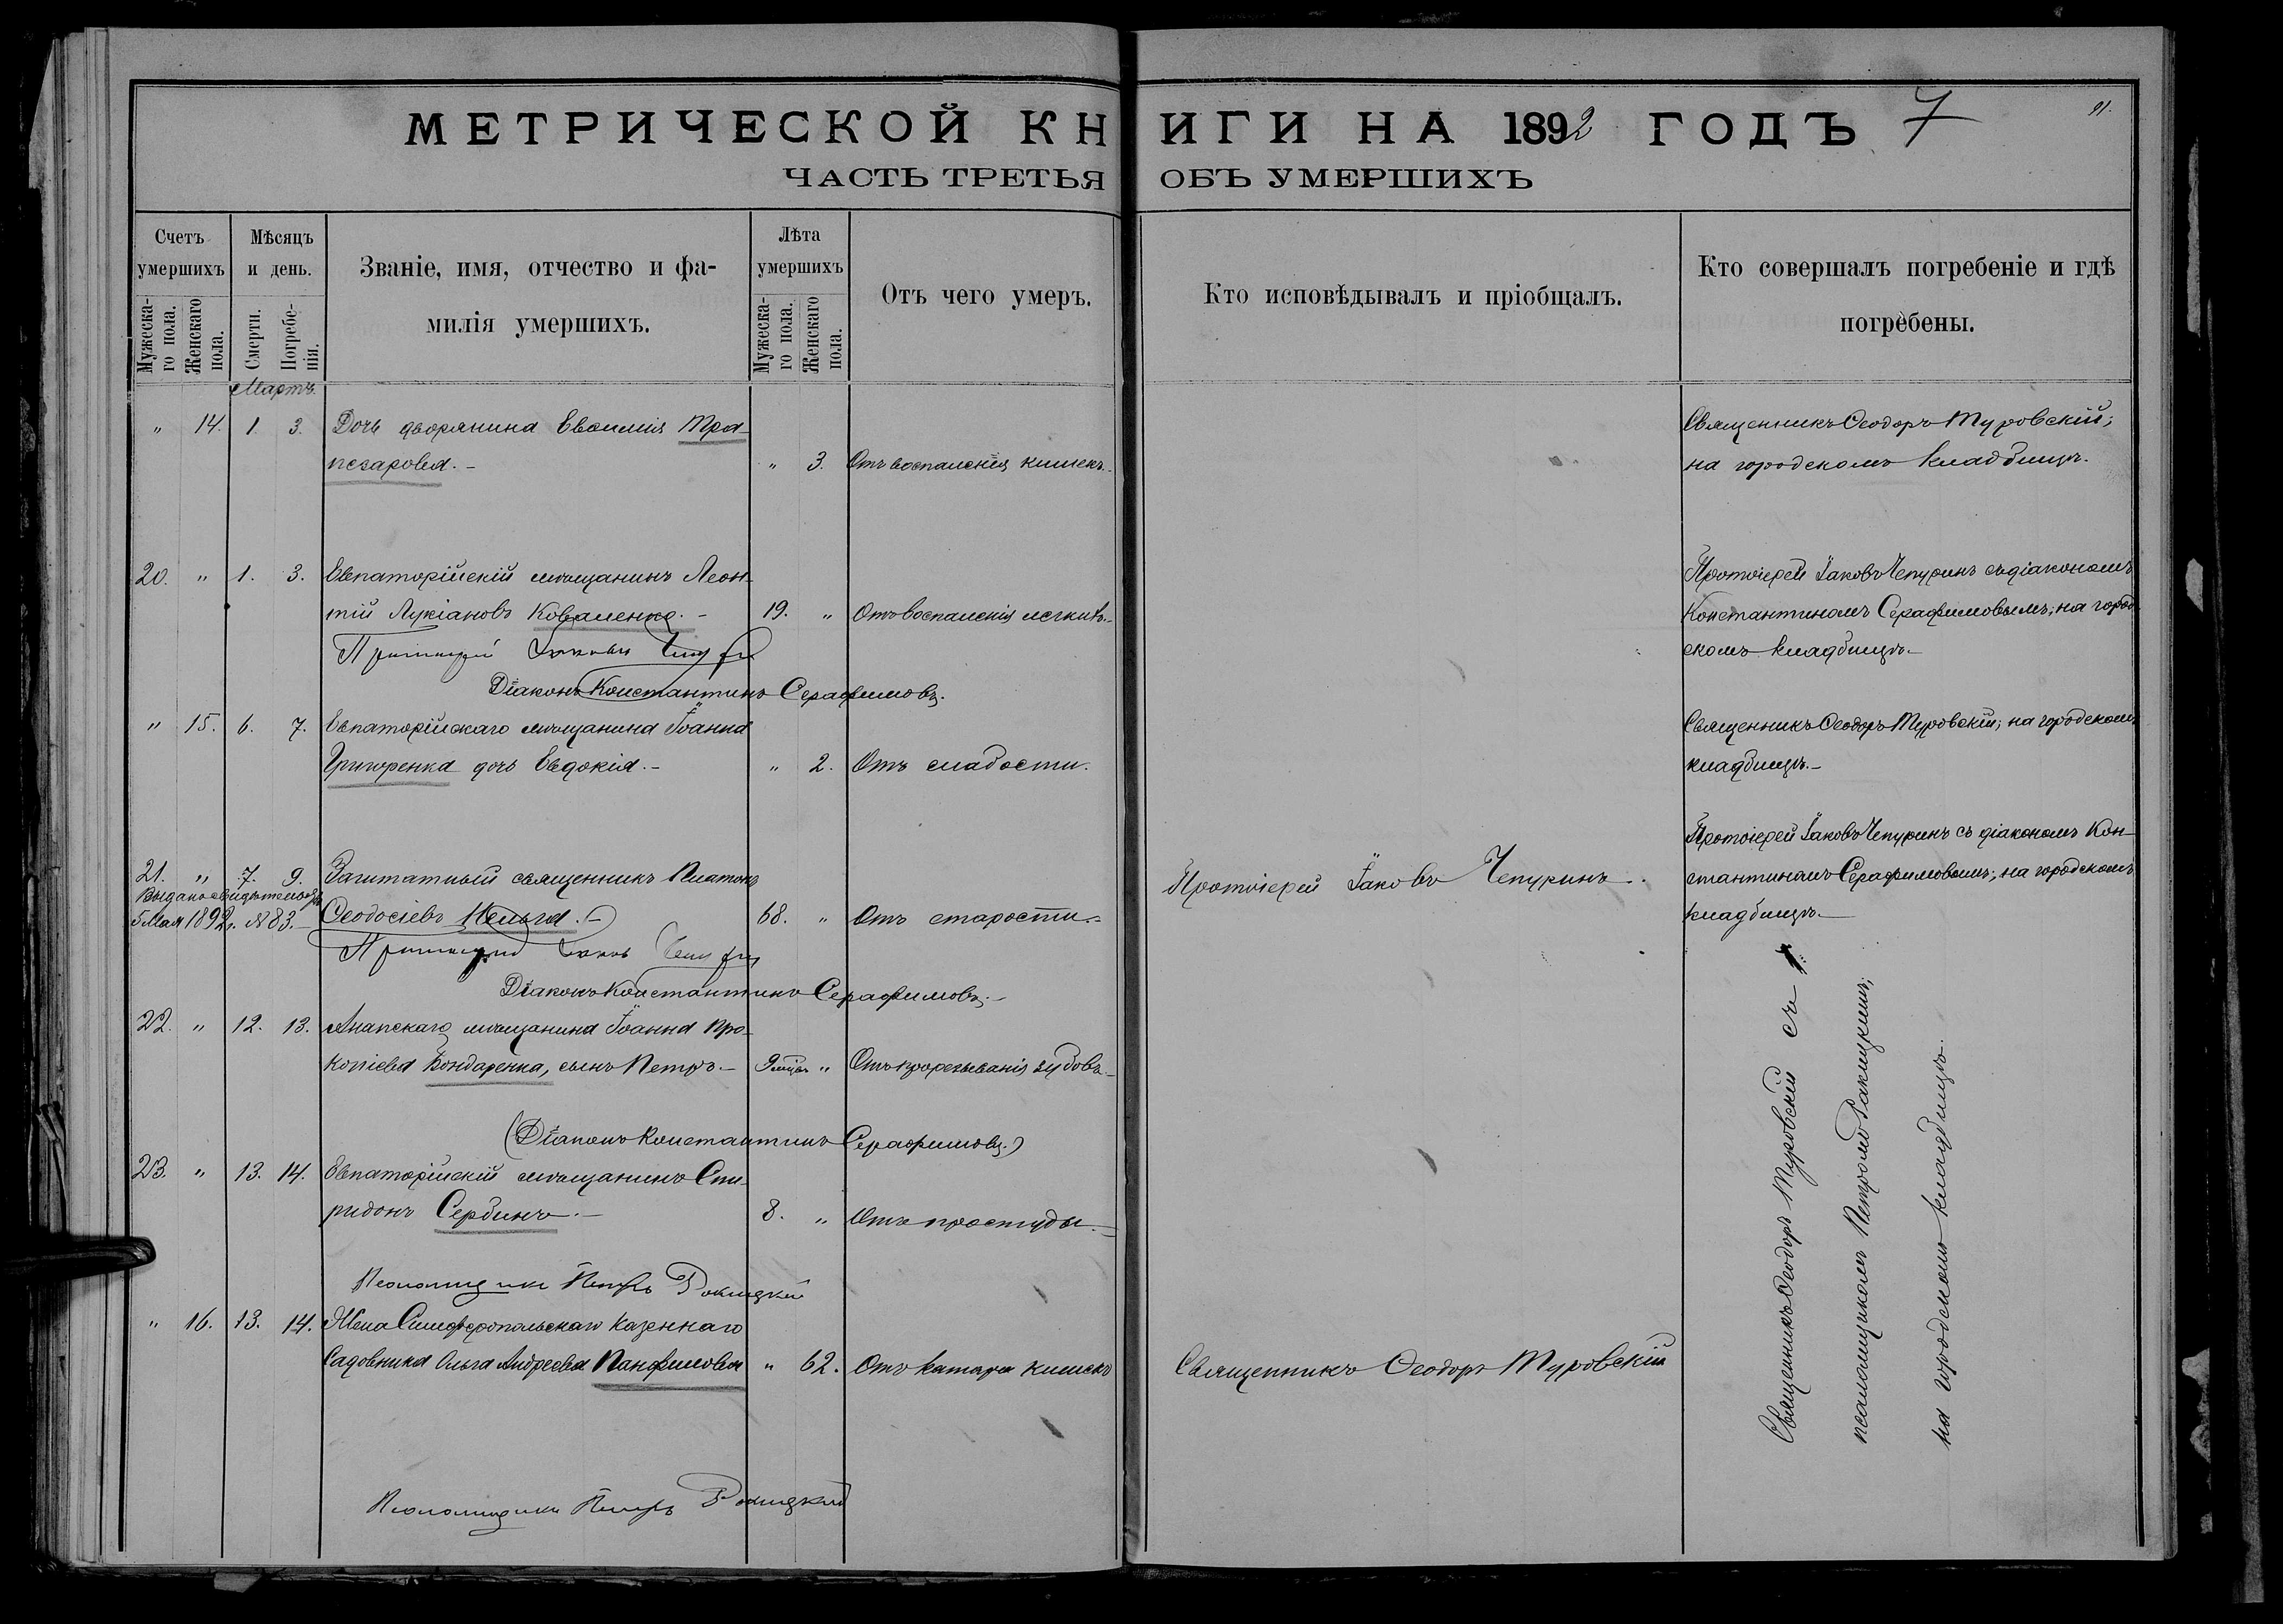 МЕТРИЧЕСКОЙ КНИГИ НА 1892 ГОДЪ 7
91.
ЧАСТЬ ТРЕТЬЯ ОБЪ УМЕРШИХЪ
Счетъ умершихъ
Мужеска-го пола.
Женскаго пола.
Мѣсяцъ и день.
Смерти.
Погребе-нія.
Званіе, имя, отчество и фа-
милія умершихъ.
Лѣта умершихъ
Мужеска-го пола.
Женскаго пола.
Отъ чего умеръ.
Кто исповѣдывалъ и пріобщалъ.
Кто совершалъ погребеніе и гдѣ
погребены.
Мартъ.
" 14. 1. 3. Дочь дворянина Евѳимія Тра-
пезарова. - " 3. Отъ воспаленія кишекъ.
Священникъ Ѳеодоръ Туровскій;
на городскомъ кладбищѣ.
20. " 1. 3. Евпаторійскій мѣщанинъ Леон-
тій Лукіановъ Коваленко. - 19. " Отъ воспаленія легкихъ.
Протоіерей Іаковъ Чепуринъ съ діакономъ
Константиномъ Серафимовымъ; на город-
скомъ кладбищѣ.
Протоіерей Іаковъ Чепуринъ
Діаконъ Константинъ Серафимовъ.
" 15. 6. 7. Евпаторійскаго мѣщанина Іоанна
Григоренка дочь Евдокія. - " 2. Отъ слабости.
Священникъ Ѳеодоръ Туровскій; на городскомъ
кладбищѣ. -
21. " 7. 9. Заштатный священникъ Платонъ
Ѳеодосіевъ 68. " Отъ старости. -
Выдано свидѣтельство
5 Мая 1892 г. № 83. -
Протоіерей Іаковъ Чепуринъ.
Протоіерей Іаковъ Чепуринъ съ діакономъ Кон-
стантиномъ Серафимовымъ; на городскомъ
кладбищѣ. -
Протоіерей Іаковъ Чепуринъ
Діаконъ Константинъ Серафимовъ. -
22. " 12. 13. Анапскаго мѣщанина Іоанна Про-
копіева Бондаренка, сынъ Петръ. - 9 мѣс. " Отъ прорезыванія зубовъ. -
(Діаконъ Константинъ Серафимовъ.)
23. " 13. 14. Евпаторійскій мѣщанинъ Спи-
ридонъ Сербинъ. - 8. " Отъ простуды. -
Псаломщикъ Петръ Ракицкій
" 16. 13. 14. Жена Симферопольскаго казеннаго
садовника Ольга Андреева Панфилова " 62. Отъ катара кишекъ
Священникъ Ѳеодоръ Туровскій
Священникъ Ѳеодоръ Туровскій съ
псаломщикомъ Петромъ Ракицкимъ;
на городскомъ кладбищѣ.
Псаломщикъ Петръ Ракицкій